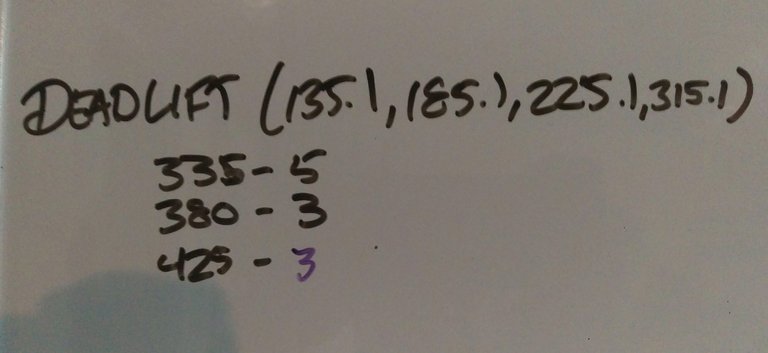 DEADLIFT (135.1, 185.1, 225.1, 315.1)
335 - 5
380 - 3
425 - 3